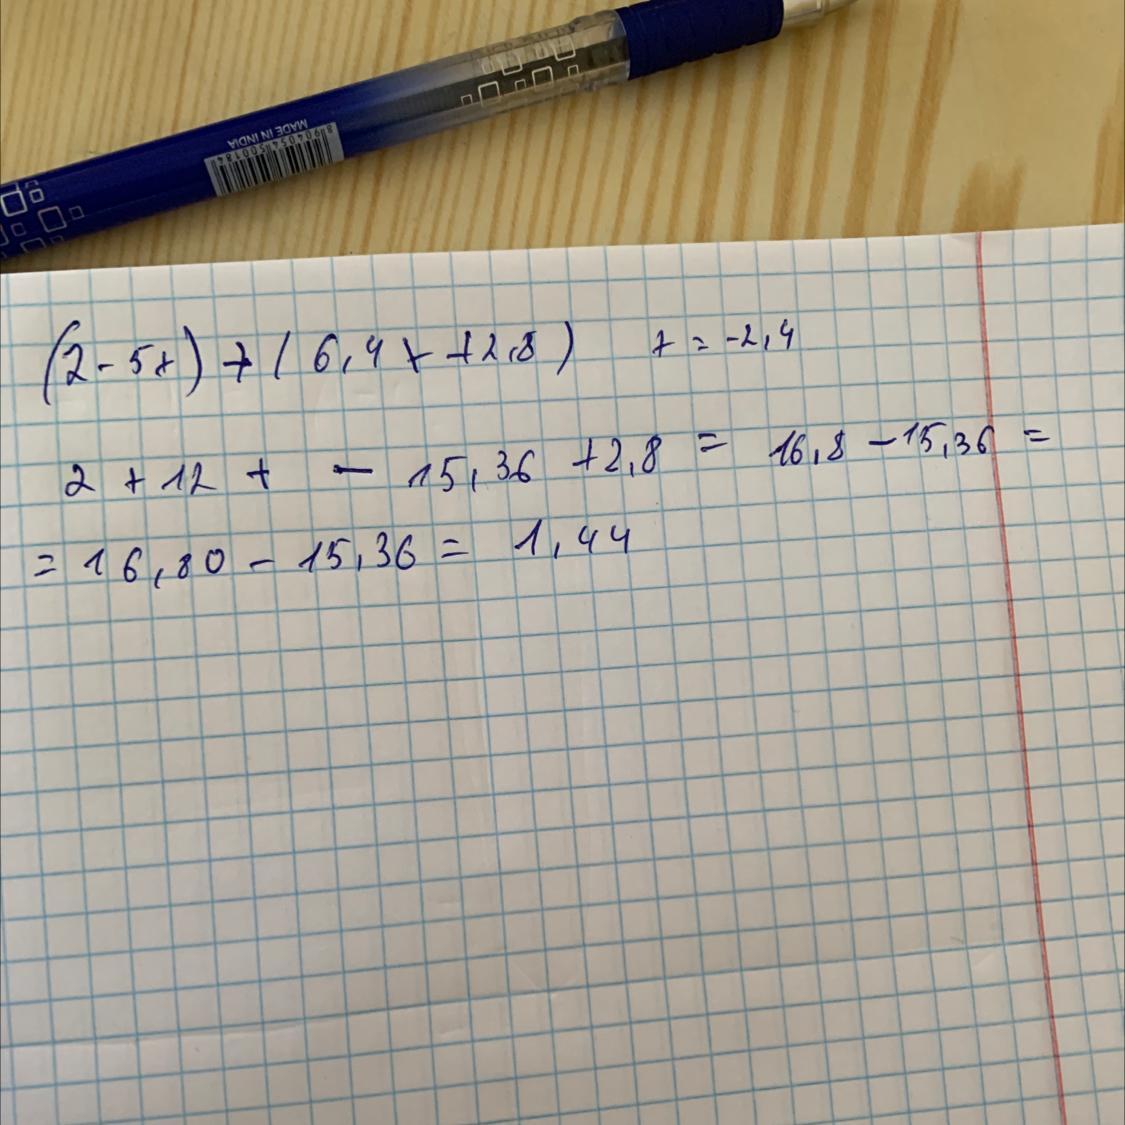 MADE IN INDIA
8904054500184
(2 - 5t) + (6,4t + 2,8) t = -2,4
2 + 12 + - 15,36 + 2,8 = 16,8 - 15,36 =
= 16,80 - 15,36 = 1,44